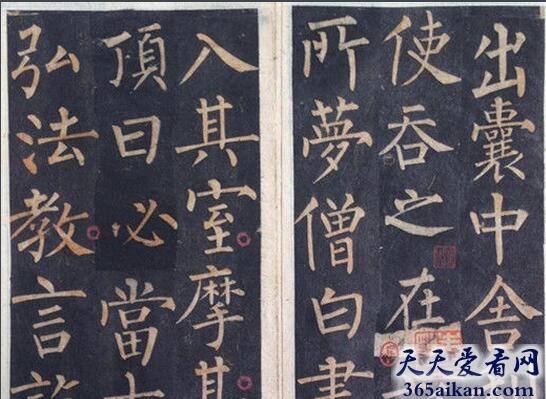 出囊中舍
使吞之在
所夢僧白
入其室摩其
頂曰必當
弘法教言
天天爱看网
365aikan.com